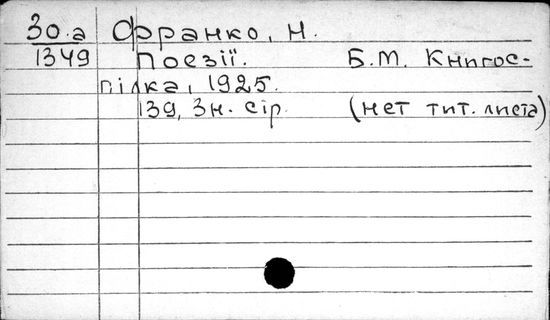 30.а Франко, Н.
1349 Поезії. Б.М. Книгос-
пілка, 1925.
139, 3н. сір. (нет тит. листа)